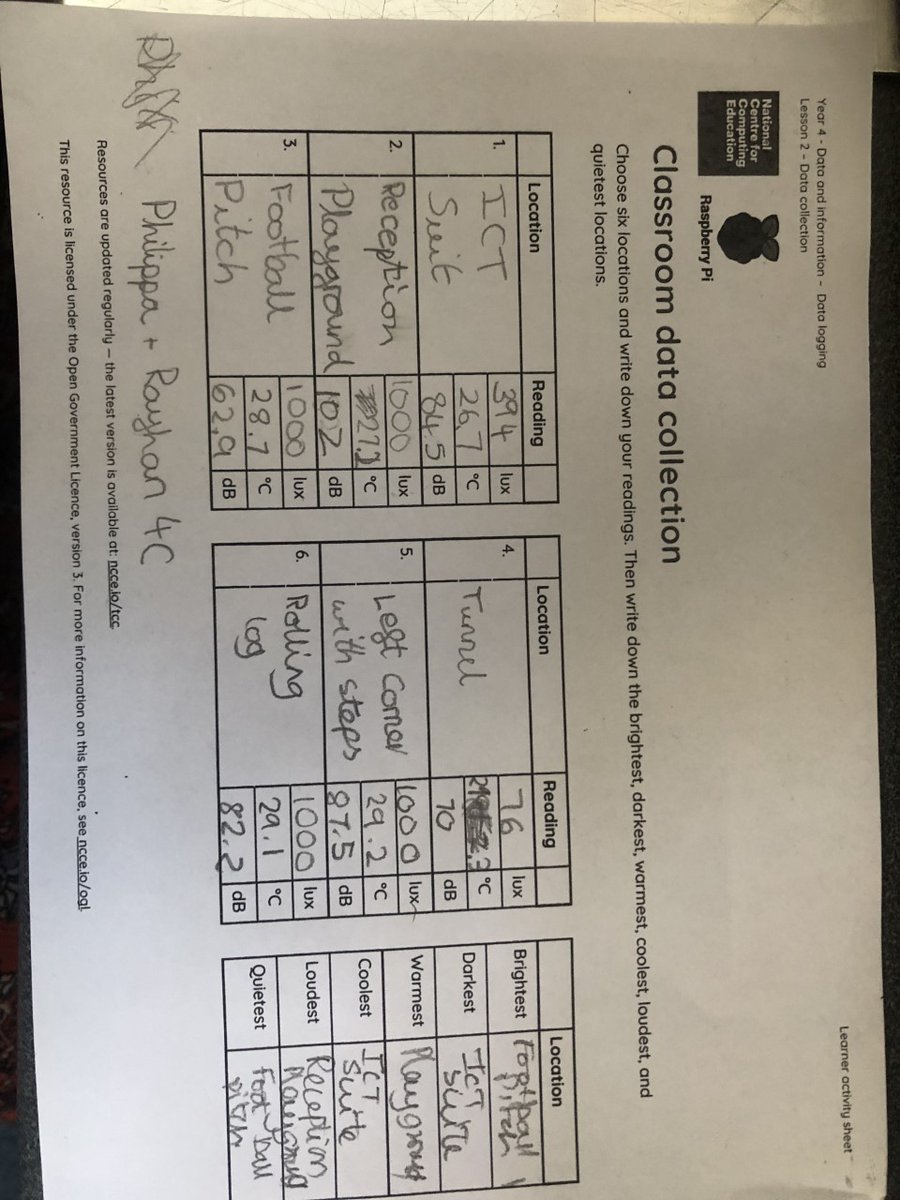 Year 4 - Data and information - Data logging
Lesson 2 - Data collection
Learner activity sheet
National
Centre for
Computing
Education
Raspberry Pi
Classroom data collection
Choose six locations and write down your readings. Then write down the brightest, darkest, warmest, coolest, loudest, and
quietest locations.
Location Reading
1. ICT Suit
394 lux
26.7 °C
84.5 dB
2. Reception Playground
1000 lux
27.2 °C
102 dB
3. Football Pitch
1000 lux
28.7 °C
62.9 dB
Location Reading
4. Tunnel
76 lux
°C
70 dB
5. Left Corner with steps
1000 lux
29.2 °C
87.5 dB
6. Rolling log
1000 lux
29.1 °C
82.2 dB
Location
Brightest Football Pitch
Darkest ICT Suite
Warmest Playground
Coolest ICT Suite
Loudest Reception Playground
Quietest Foot ball pitch
Philippa + Rayhan 4C
Resources are updated regularly – the latest version is available at: ncce.io/tcc
This resource is licensed under the Open Government Licence, version 3. For more information on this licence, see ncce.io/ogl